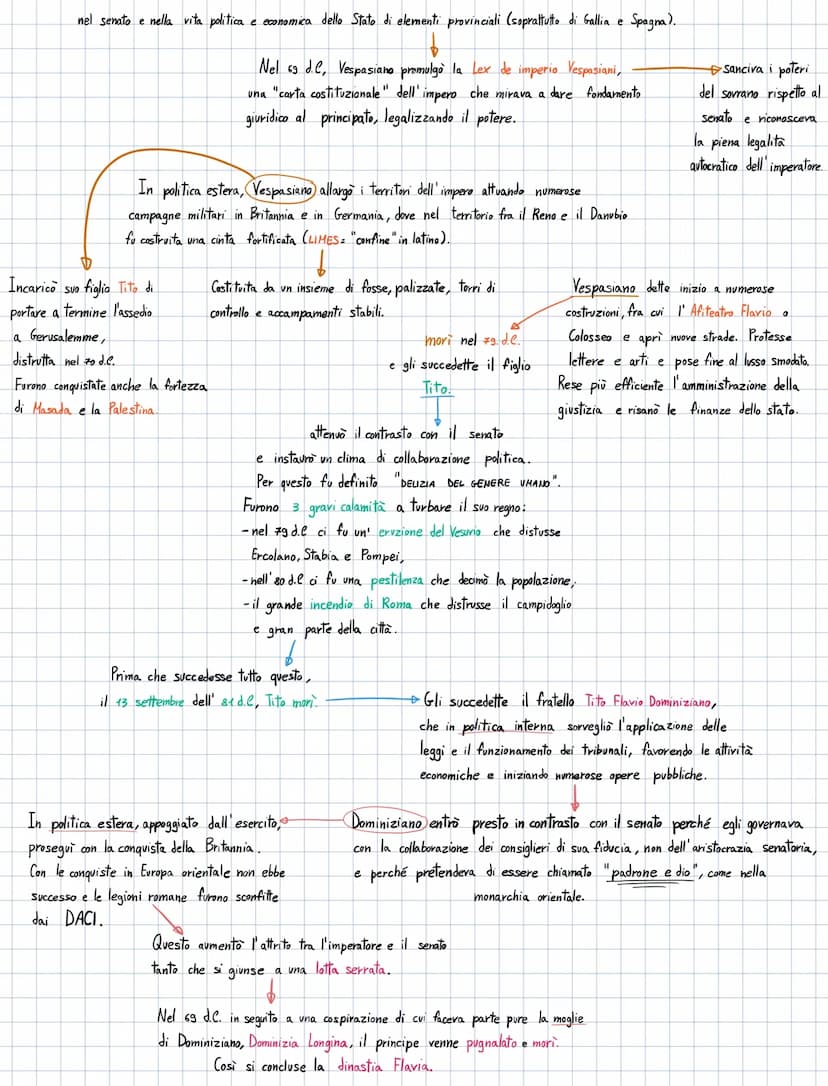 nel senato e nella vita politica e economica dello Stato di elementi provinciali (soprattutto di Gallia e Spagna).
Nel 69 d.C, Vespasiano promulgò la Lex de imperio Vespasiani,
una "carta costituzionale" dell'impero che mirava a dare fondamento
giuridico al principato, legalizzando il potere.
sanciva i poteri
del sovrano rispetto al
senato e riconosceva
la piena legalità
autocratico dell'imperatore.
In politica estera, Vespasiano allargò i territori dell'impero attuando numerose
campagne militari in Britannia e in Germania, dove nel territorio fra il Reno e il Danubio
fu costruita una cinta fortificata (LIMES= "confine" in latino).
Incaricò suo figlio Tito di
portare a termine l'assedio
a Gerusalemme,
distrutta nel 70 d.C.
Furono conquistate anche la fortezza
di Masada e la Palestina.
Costituita da un insieme di fosse, palizzate, torri di
controllo e accampamenti stabili.
Vespasiano dette inizio a numerose
costruzioni, fra cui l'Afiteatro Flavio o
Colosseo e aprì nuove strade. Protesse
lettere e arti e pose fine al lusso smodato.
Rese più efficiente l'amministrazione della
giustizia e risanò le finanze dello stato.
morì nel 79 d.C.
e gli succedette il figlio
Tito.
attenuò il contrasto con il senato
e instaurò un clima di collaborazione politica.
Per questo fu definito "DELIZIA DEL GENERE UMANO".
Furono 3 gravi calamità a turbare il suo regno:
-nel 79 d.C ci fu un' eruzione del Vesuvio che distusse
Ercolano, Stabia e Pompei,
-nell'80 d.C ci fu una pestilenza che decimò la popolazione,
-il grande incendio di Roma che distrusse il campidoglio
e gran parte della città.
Prima che succedesse tutto questo,
il 13 settembre dell' 81 d.C, Tito morì.
Gli succedette il fratello Tito Flavio Dominiziano,
che in politica interna sorvegliò l'applicazione delle
leggi e il funzionamento dei tribunali, favorendo le attività
economiche e iniziando numerose opere pubbliche.
Dominiziano entrò presto in contrasto con il senato perché egli governava
con la collaborazione dei consiglieri di sua fiducia, non dell'aristocrazia senatoria,
e perché pretendeva di essere chiamato "padrone e dio", come nella
monarchia orientale.
In politica estera, appoggiato dall'esercito,
proseguì con la conquista della Britannia.
Con le conquiste in Europa orientale non ebbe
successo e le legioni romane furono sconfitte
dai DACI.
Questo aumentò l'attrito tra l'imperatore e il senato
tanto che si giunse a una lotta serrata.
Nel 69 d.C. in seguito a una cospirazione di cui faceva parte pure la moglie
di Dominiziano, Dominizia Longina, il principe venne pugnalato e morì.
Così si concluse la dinastia Flavia.